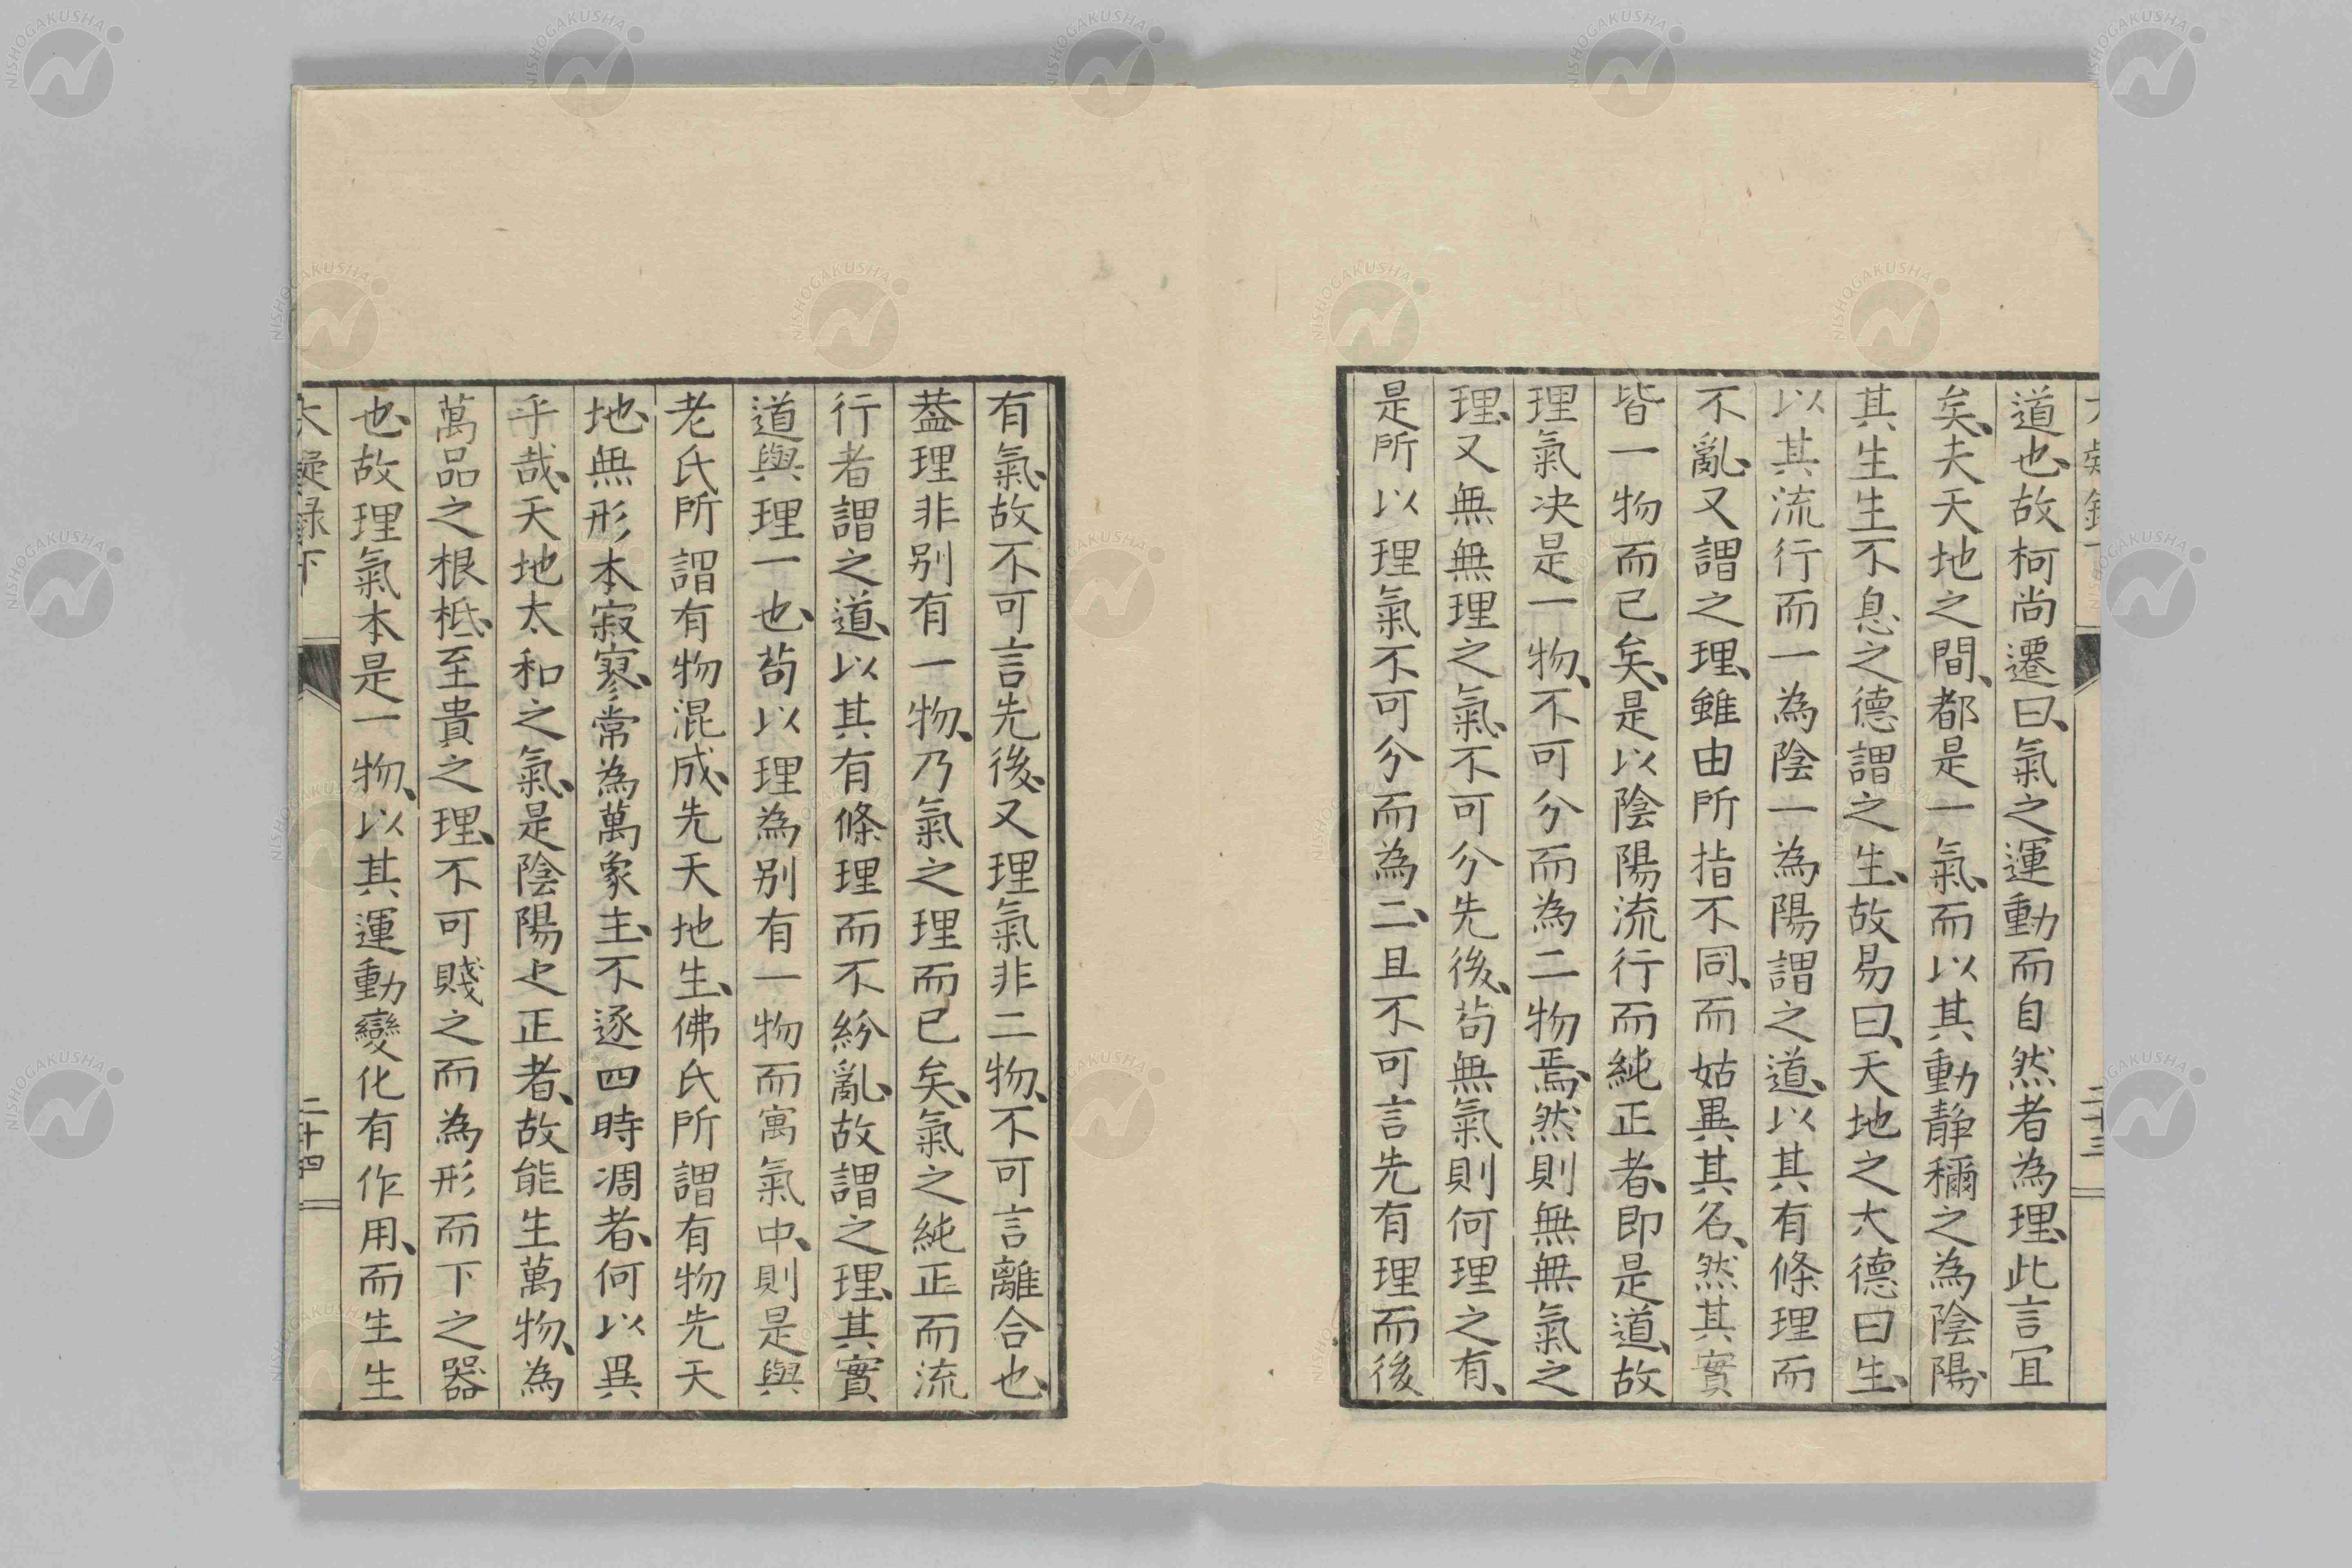 道也、故柯尚遷曰、氣之運動而自然者為理、此言冝
矣、夫天地之間、都是一氣、而以其動靜稱之為陰陽、
其生生不息之德謂之生、故易曰、天地之大德曰生、
以其流行而一為陰一為陽謂之道、以其有條理而
不亂、又謂之理、雖由所指不同、而姑異其名、然其實
皆一物而已矣、是以陰陽流行而純正者、即是道、故
理氣决是一物、不可分而為二物焉、然則無無氣之
理、又無無理之氣、不可分先後、苟無氣則何理之有、
是所以理氣不可分而為二、且不可言先有理而後
二十三
有氣、故不可言先後、又理氣非二物、不可言離合也、
葢理非別有一物、乃氣之理而已矣、氣之純正而流
行者謂之道、以其有條理而不紛亂、故謂之理、其實
道與理一也、苟以理為別有一物而寓氣中、則是與
老氏所謂有物混成、先天地生、佛氏所謂有物先天
地、無形本寂寥、常為萬象主、不逐四時凋者、何以異
乎哉、天地太和之氣、是陰陽之正者、故能生萬物、為
萬品之根柢、至貴之理、不可賤之而為形而下之器
也、故理氣本是一物、以其運動變化有作用、而生生
大疑録下
二十四